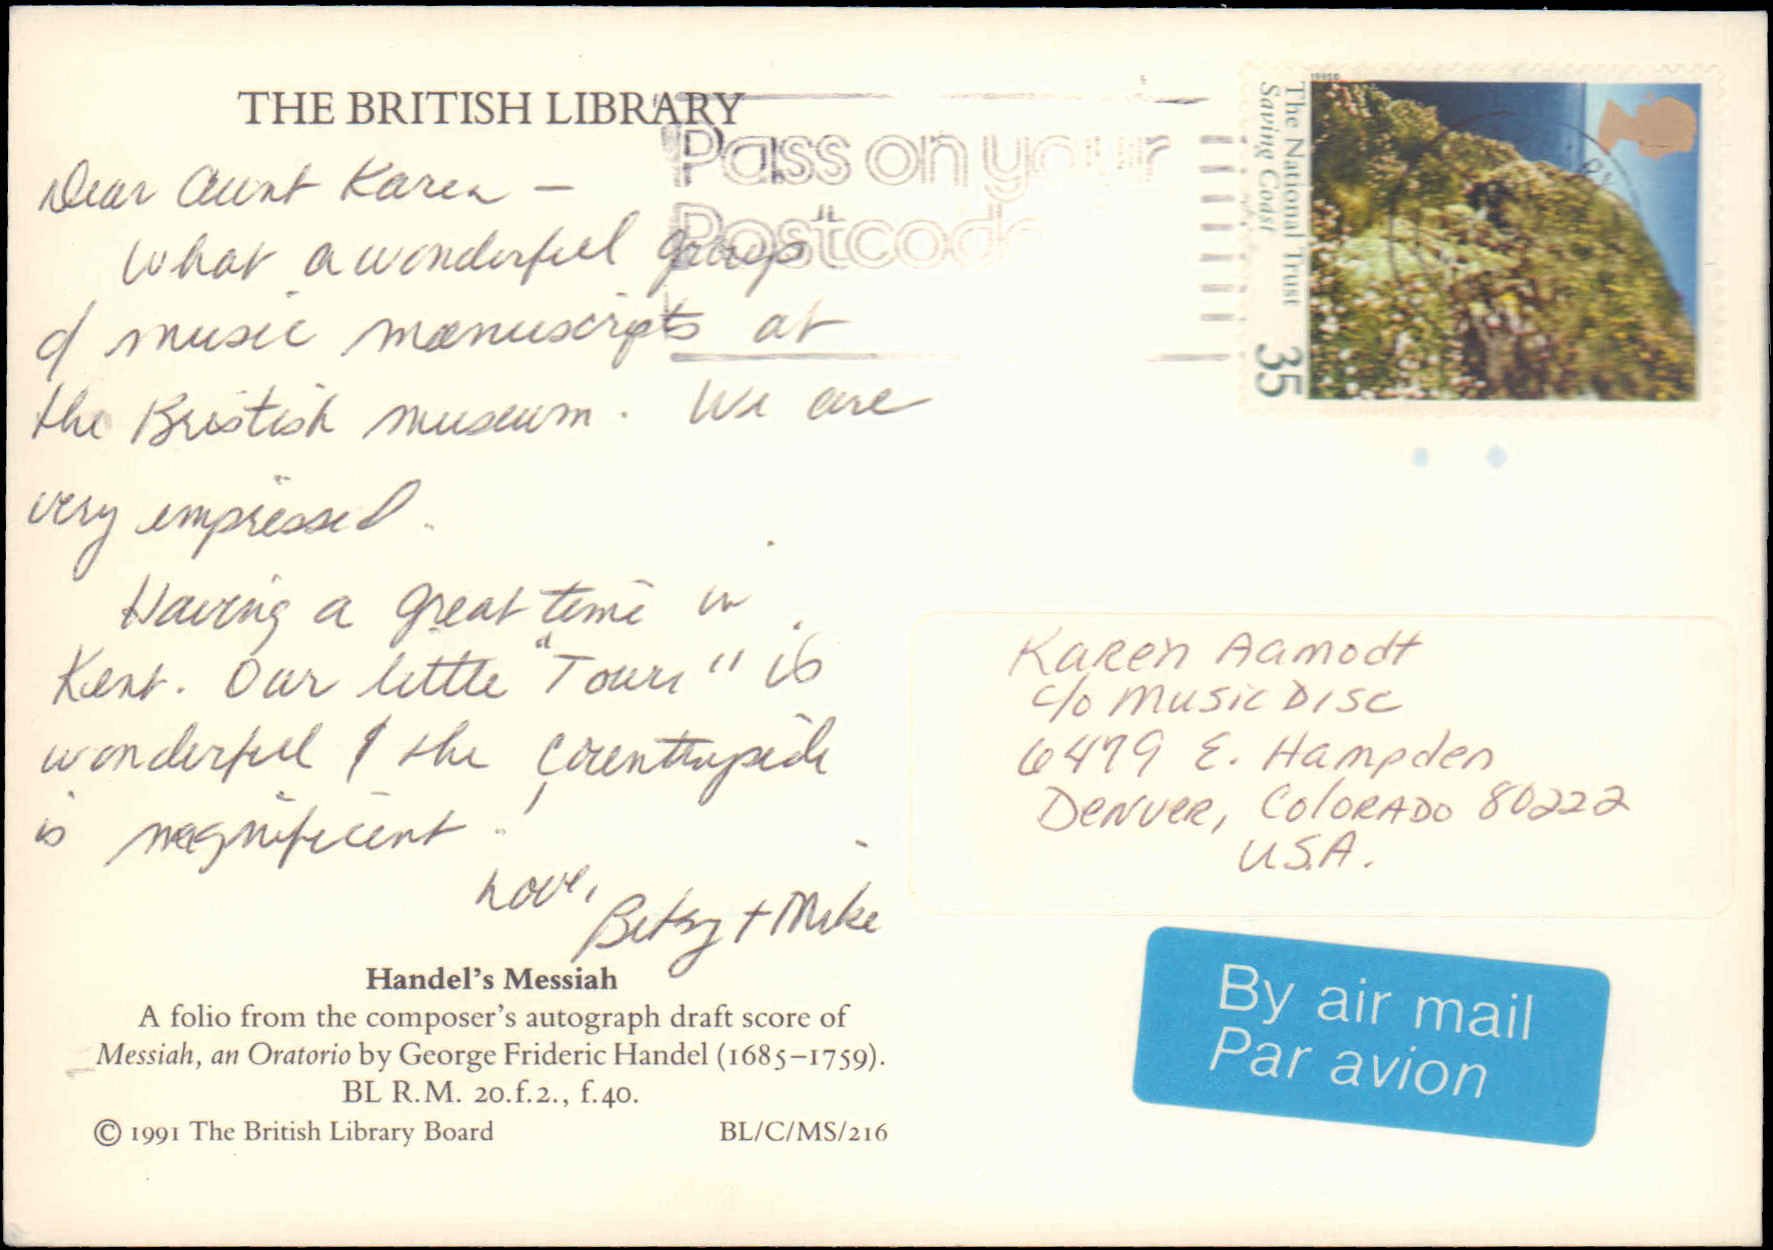 THE BRITISH LIBRARY
Dear Aunt Karen –
What a wonderful group
of music manuscripts at
the Bristish museum. We are
very impressed.
Having a great time in
Kent. Our little "Tour" is
wonderful & the countryside
is magnificent!
Love,
Betsy + Mike
Handel's Messiah
A folio from the composer's autograph draft score of
Messiah, an Oratorio by George Frideric Handel (1685–1759).
BL R.M. 20.f.2., f.40.
© 1991 The British Library Board BL/C/MS/216
Pass on your
Postcode
The National Trust
Saving Coast
35
Karen Aamodt
c/o Music Disc
6479 E. Hampden
Denver, Colorado 80222
U.S.A.
By air mail
Par avion